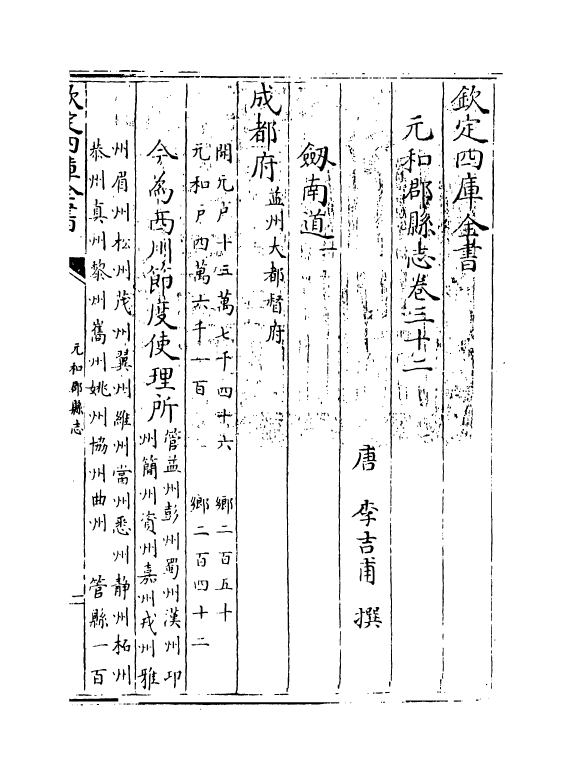 欽定四庫全書
元和郡縣志卷三十二
唐 李吉甫 撰
劔南道一
成都府 益州大都督府
開元户十三萬七千四十六 鄉二百五十
元和户四萬六千一百 鄉二百四十二
今為西川節度使理所
管益州彭州蜀州漢州卭
州簡州資州嘉州戎州雅
州眉州松州茂州翼州維州當州悉州靜州柘州
恭州真州黎州嶲州姚州協州曲州 管縣一百
欽定四庫全書
元和郡縣志